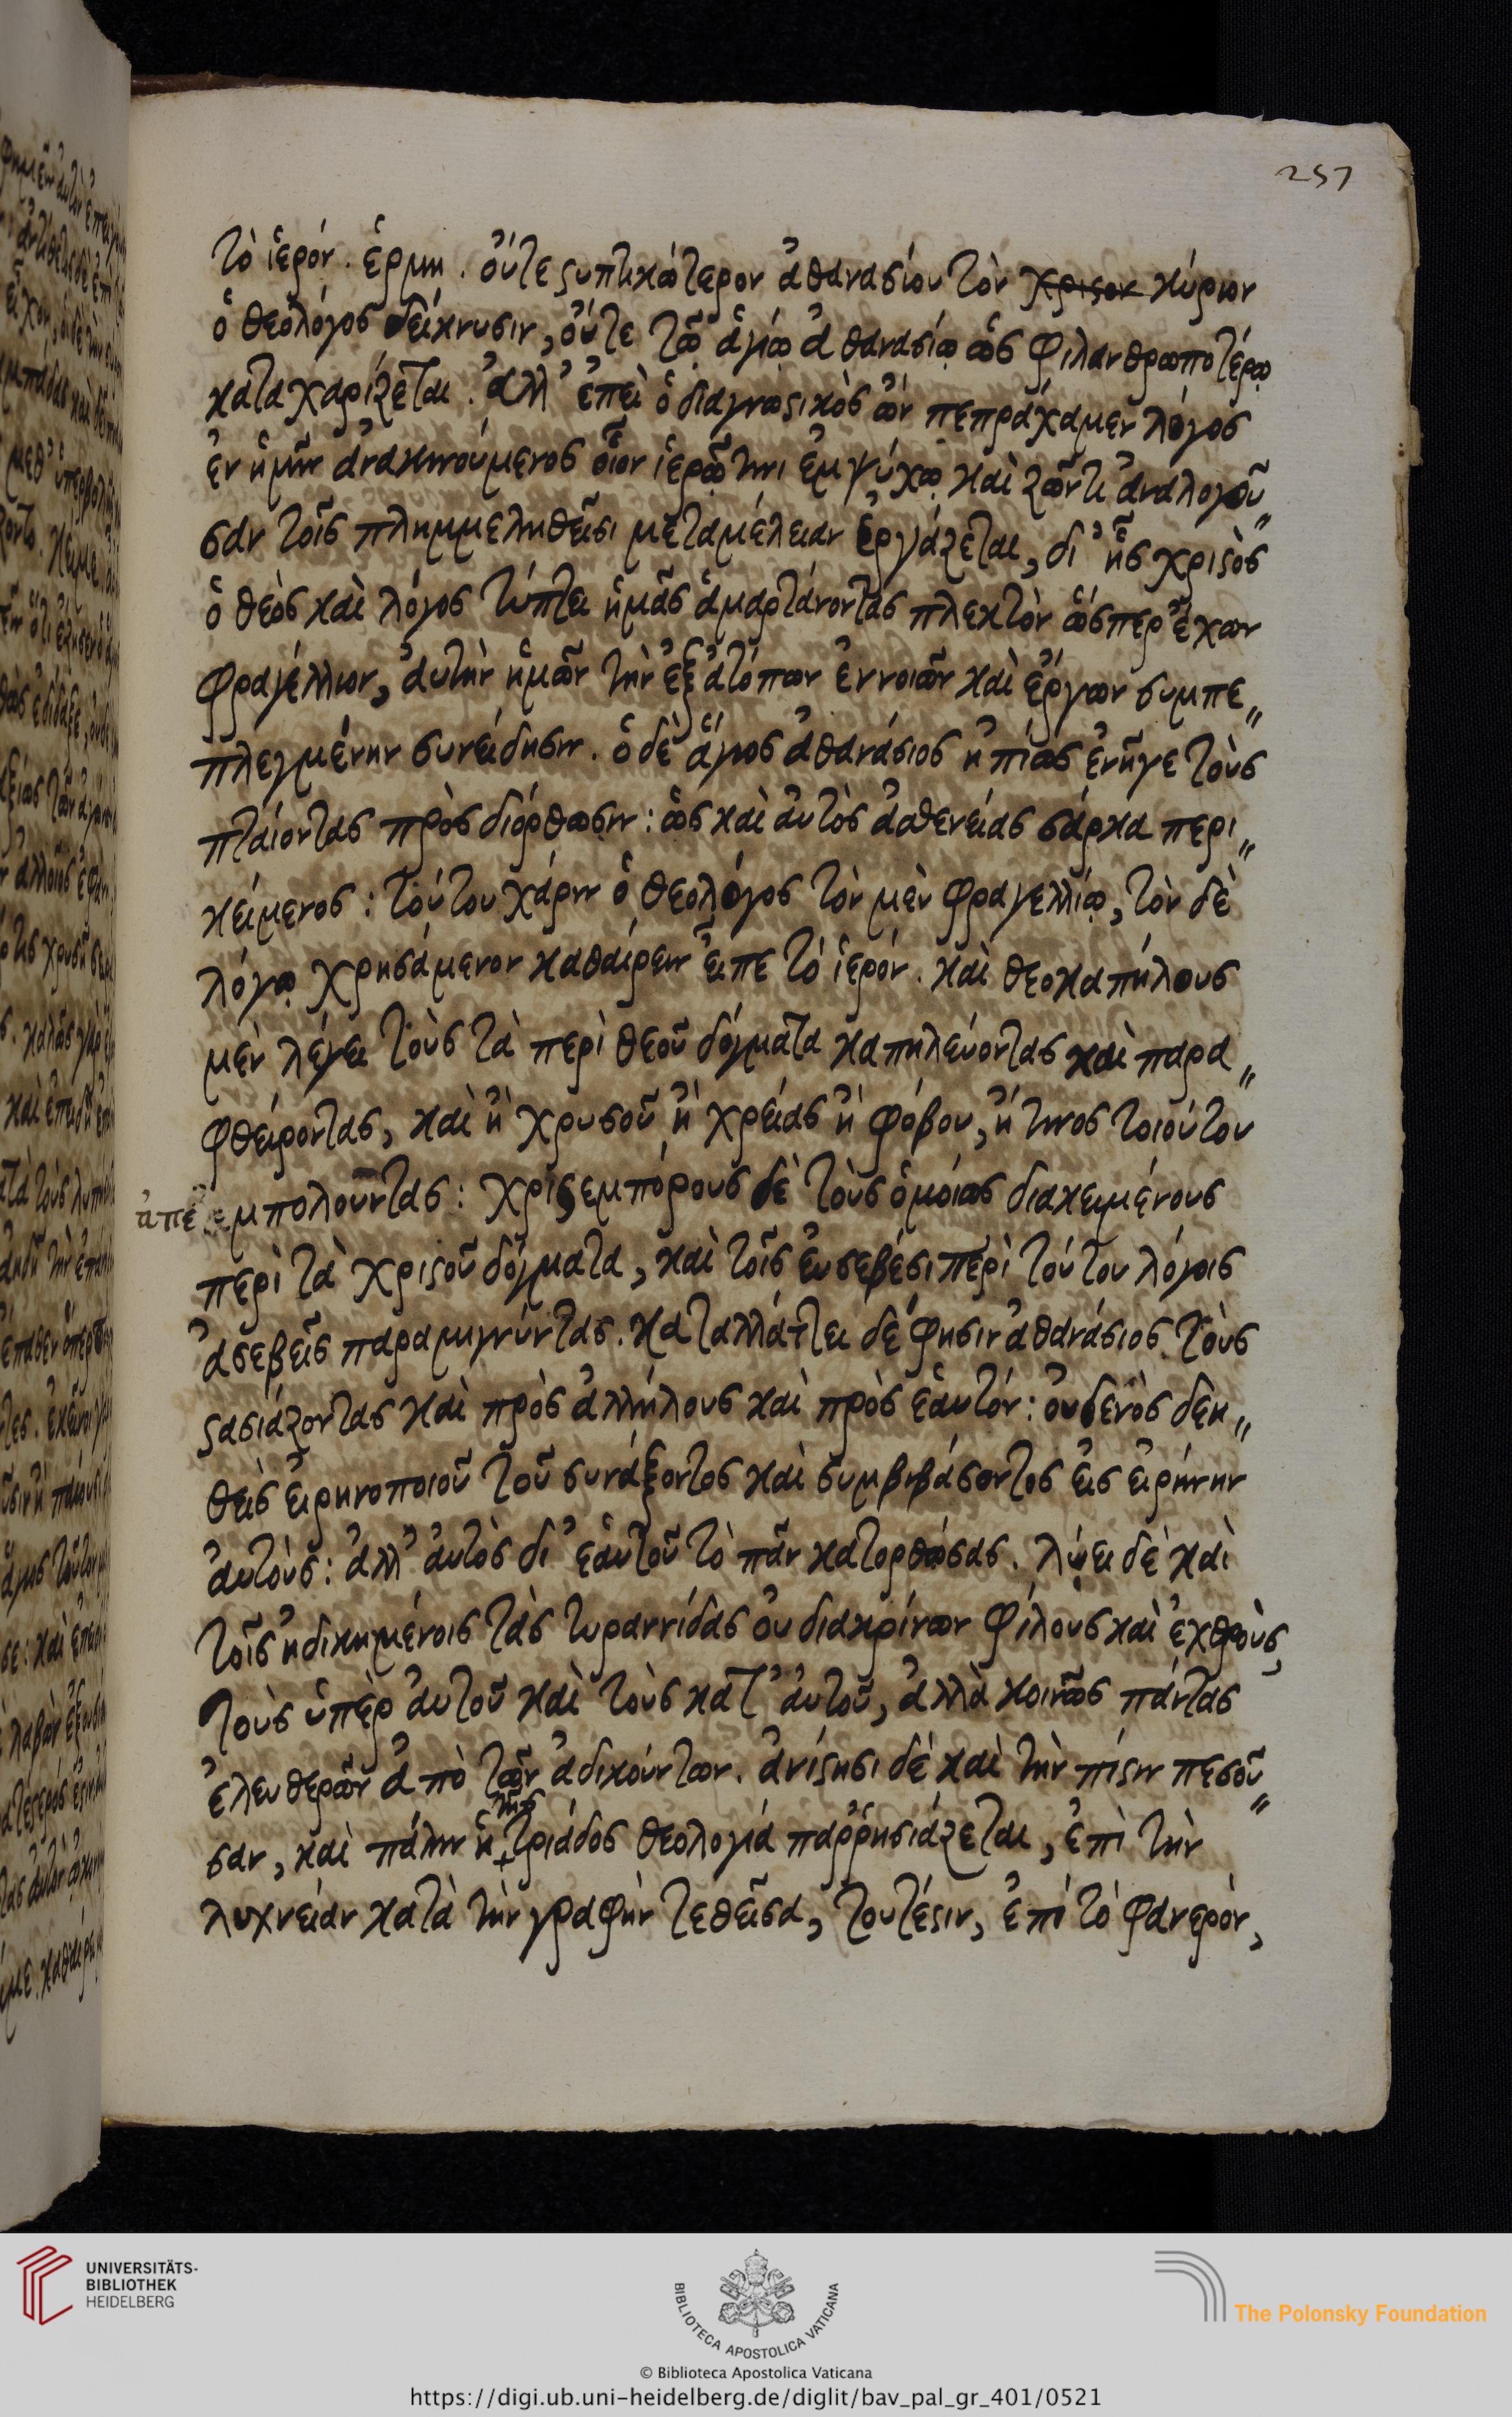 257
τὸ ἱερόν. ἑρμη. οὔτε ϛυπτικώτερον ἀθανασίου τὸν χριϛον κύριον
ὁ θεολόγος δείκνυσιν, οὔτε τῶ ἁγίω ἀθανασίῳ ὡς φιλανθρωποτέρῳ
καταχαρίζεται. ἀλλ' ἐπεὶ ὁ διαγνωϛικὸς ὧν πεπράχαμεν λόγος
ἐν ἡμῖν ἀνακινούμενος οἷον ἱερῷ τινι ἐμψύχῳ καὶ ζῶντι ἀνάλογοῦ„
σαν τοῖς πλημμεληθεῖσι μεταμέλειαν ἐργάζεται, δι' ἧς χριϛὸς
ὁ θεὸς καὶ λόγος τύπτει ἡμᾶς ἁμαρτάνοντας πλεκτὸν ὥσπερ ἔχων
φραγέλλιον, ἀυτὴν ἡμῶν τὴν ἐξ ἀτόπων ἐννοιῶν καὶ ἔργων συμπε„
πλεγμένην συνείδησιν. ὁ δὲ ἅγιος ἀθανάσιος ἠπίως ἐνῆγε τοὺς
πταίοντας πρὸς διόρθωσιν: ὡς καὶ ἀυτὸς ἀσθενείας σάρκα περι„
κείμενος: τούτου χάριν ὁ θεολόγος τὸν μὲν φραγελλίῳ, τὸν δὲ
λόγῳ χρησάμενον καθαίρειν εἶπε τὸ ἱερόν. καὶ θεοκαπήλους
μὲν λέγει τοὺς τὰ περὶ θεοῦ δόγματα καπηλεύοντας καὶ παρα„
φθείροντας, καὶ ἢ χρυσοῦ ἢ χρείας ἢ φόβου, ἤ τινος τοιούτου
ἀπεμπολοῦντας: χριϛεμπόρους δὲ τοὺς ὁμοίως διακειμένους
περὶ τὰ χριϛοῦ δόγματα, καὶ τοῖς ἐυσεβέσι περὶ τούτου λόγοις
ἀσεβεῖς παραμιγνύντας. καταλλάττει δέ φησιν ἀθανάσιος τοὺς
ϛασιάζοντας καὶ πρὸς ἀλλήλους καὶ πρὸς ἑαυτόν: ὀυδενὸς δεη„
θεὶς ἐιρηνοποιοῦ τοῦ συνάξοντος καὶ συμβιβάσοντος ἐις ἐιρήνην
ἀυτοὺς: ἀλλ' ἀυτὸς δι' ἑαυτοῦ τὸ πᾶν κατορθώσας. λύει δὲ καὶ
τοῖς ἠδικημένοις τὰς τυραννίδας ὀυ διακρίνων φίλους καὶ ἐχθροὺς,
τοὺς ὑπὲρ ἀυτοῦ καὶ τοὺς κατ' ἀυτοῦ, ἀλλὰ κοινῶς πάντας
ἐλευθερῶν ἀπὸ τῶν ἀδικούντων. ἀνίϛησι δὲ καὶ τὴν πίϛιν πεσοῦ„
σαν, καὶ πάλιν ἡ τῆς τριάδος θεολογία παῤῥησιάζεται, ἐπὶ τὴν
λυχνείαν κατὰ τὴν γραφὴν τεθεῖσα, τουτέϛιν, ἐπὶ τὸ φανερὸν,
UNIVERSITÄTS-
BIBLIOTHEK
HEIDELBERG
BIBLIOTECA APOSTOLICA VATICANA
The Polonsky Foundation
© Biblioteca Apostolica Vaticana
https://digi.ub.uni-heidelberg.de/diglit/bav_pal_gr_401/0521